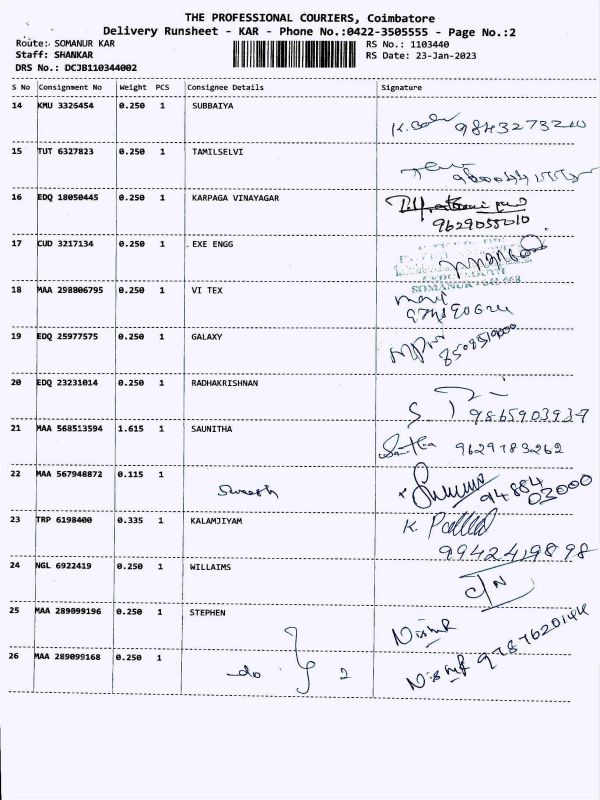 THE PROFESSIONAL COURIERS, Coimbatore
Delivery Runsheet - KAR - Phone No.:0422-3505555 - Page No.:2
Route: SOMANUR KAR
RS No.: 1103440
Staff: SHANKAR
RS Date: 23-Jan-2023
DRS No.: DCJB110344002
S No Consignment No Weight PCS Consignee Details Signature
14 KMU 3326454 0.250 1 SUBBAIYA
9843273210
15 TUT 6327823 0.250 1 TAMILSELVI
16 EDQ 18050445 0.250 1 KARPAGA VINAYAGAR
9629055010
17 CUD 3217134 0.250 1 EXE ENGG
18 MAA 298806795 0.250 1 VI TEX
19 EDQ 25977575 0.250 1 GALAXY
8508519000
20 EDQ 23231014 0.250 1 RADHAKRISHNAN
9865903937
21 MAA 568513594 1.615 1 SAUNITHA
9629783262
22 MAA 567948872 0.115 1 Suresh
94884 03000
23 TRP 6198400 0.335 1 KALAMJIYAM
9942419898
24 NGL 6922419 0.250 1 WILLAIMS
25 MAA 289099196 0.250 1 STEPHEN
26 MAA 289099168 0.250 1 do 2
9787620144